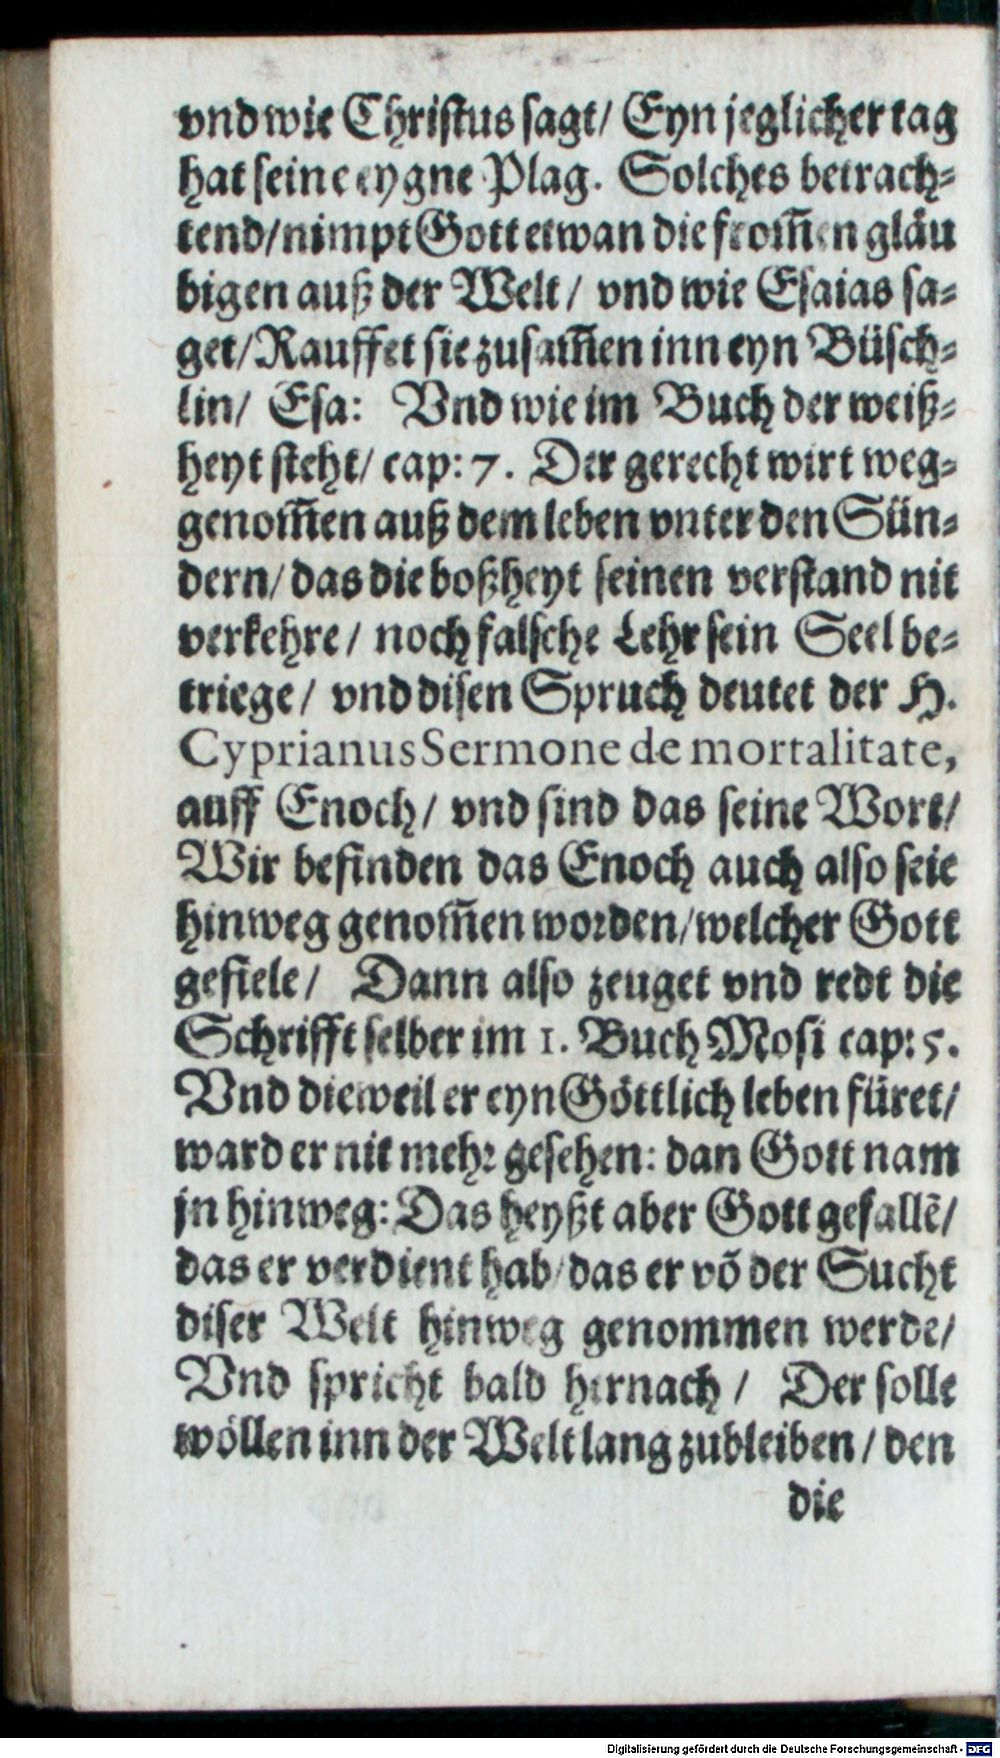 vnd wie Christus sagt/ Eyn jeglicher tag
hat seine eygne Plag. Solches betrach-
tend/ nimpt Gott etwan die from̃en gläu
bigen auß der Welt/ vnd wie Esaias sa-
get/ Rauffet sie zusam̃en inn eyn Büsch-
lin/ Esa: Vnd wie im Buch der weiß-
heyt steht/ cap: 7. Der gerecht wirt weg-
genom̃en auß dem leben vnter den Sün-
dern/ das die boßheyt seinen verstand nit
verkehre/ noch falsche Lehr sein Seel be-
triege/ vnd disen Spruch deutet der H.
Cyprianus Sermone de mortalitate,
auff Enoch/ vnd sind das seine Wort/
Wir befinden das Enoch auch also seie
hinweg genom̃en worden/ welcher Gott
gefiele/ Dann also zeuget vnd redt die
Schrifft selber im 1. Buch Mosi cap: 5.
Vnd dieweil er eyn Göttlich leben füret/
ward er nit mehr gesehen: dan Gott nam
jn hinweg: Das heyßt aber Gott gefallẽ/
das er verdient hab/ das er võ der Sucht
diser Welt hinweg genommen werde/
Vnd spricht bald hernach/ Der solle
wöllen inn der Welt lang zubleiben/ den
die
Digitalisierung gefördert durch die Deutsche Forschungsgemeinschaft - DFG